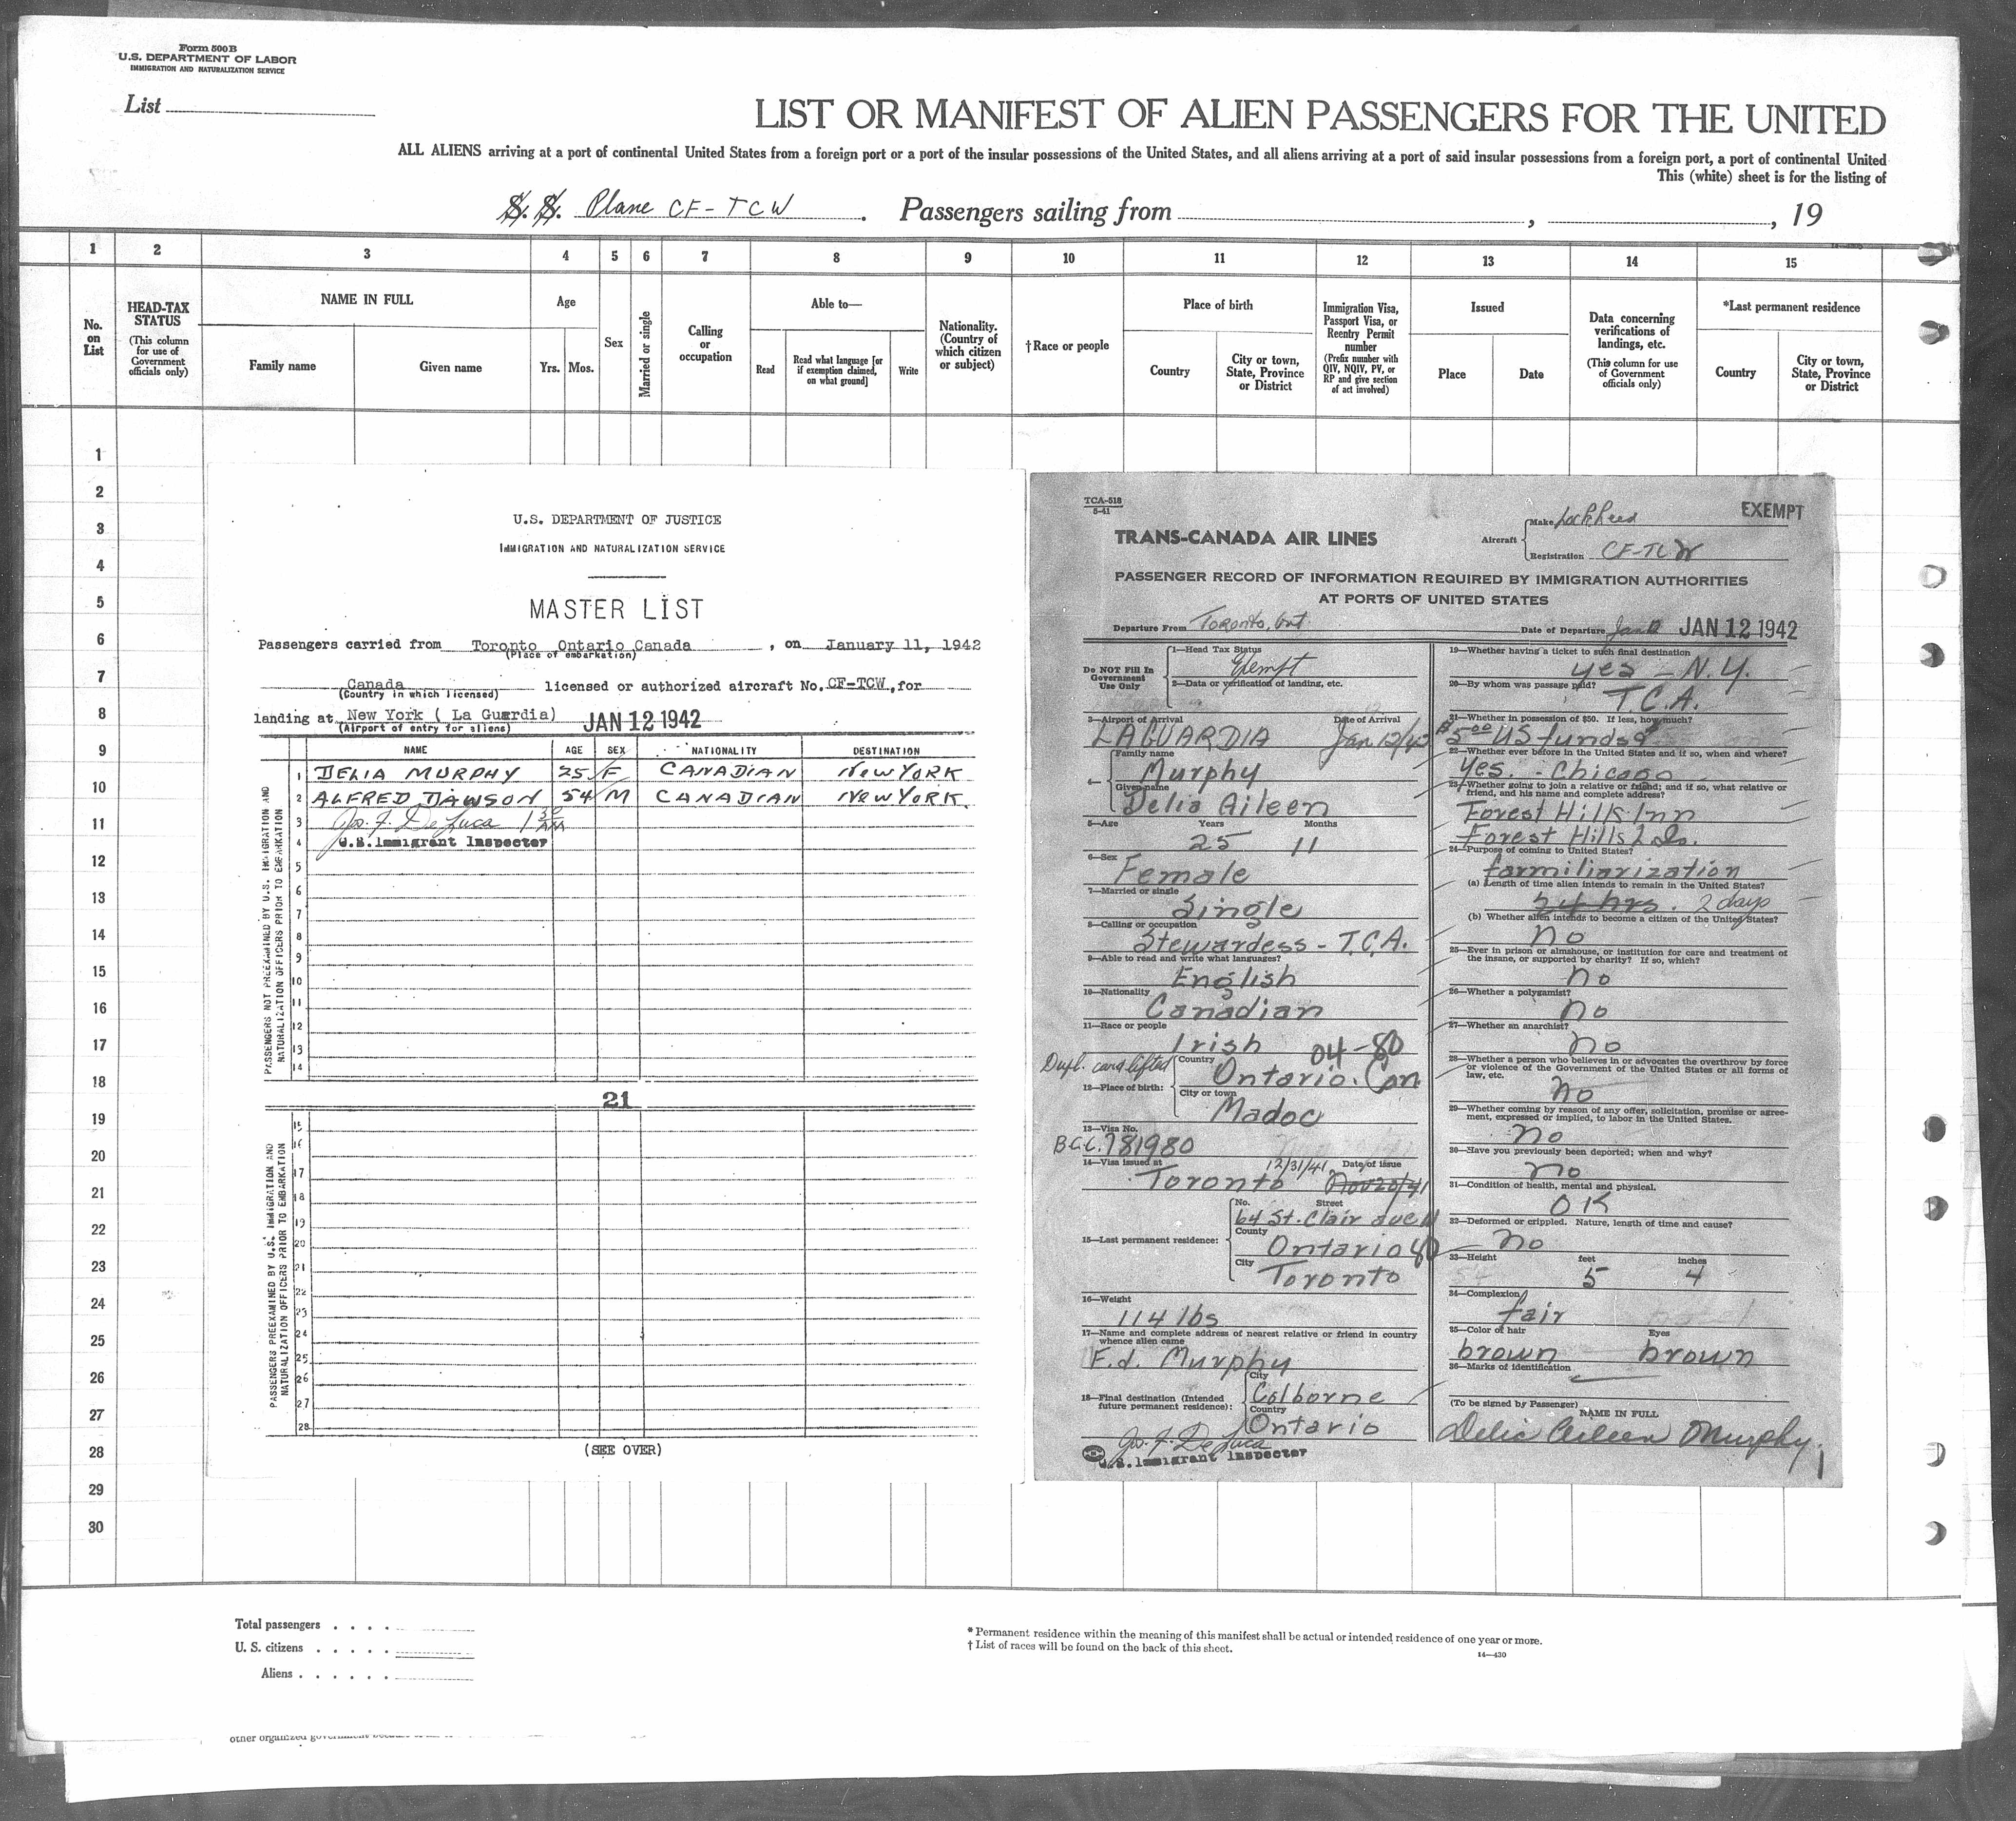 Form 500B
U.S. DEPARTMENT OF LABOR
IMMIGRATION AND NATURALIZATION SERVICE
List
LIST OR MANIFEST OF ALIEN PASSENGERS FOR THE UNITED
ALL ALIENS arriving at a port of continental United States from a foreign port or a port of the insular possessions of the United States, and all aliens arriving at a port of said insular possessions from a foreign port, a port of continental United
This (white) sheet is for the listing of
S. S. Plane CF-TCW . Passengers sailing from , , 19
1 2 3 4 5 6 7 8 9 10 11 12 13 14 15
No. on List
HEAD-TAX STATUS
(This column for use of Government officials only)
NAME IN FULL
Family name Given name
Age
Yrs. Mos.
Sex
Married or single
Calling or occupation
Able to—
Read
Read what language [or if exemption claimed, on what ground]
Write
Nationality. (Country of which citizen or subject)
†Race or people
Place of birth
Country
City or town, State, Province or District
Immigration Visa, Passport Visa, or Reentry Permit number
(Prefix number with QIV, NQIV, PV, or RP and give section of act involved)
Issued
Place Date
Data concerning verifications of landings, etc.
(This column for use of Government officials only)
*Last permanent residence
Country
City or town, State, Province or District
1
2
3
4
5
6
7
8
9
10
11
12
13
14
15
16
17
18
19
20
21
22
23
24
25
26
27
28
29
30
U.S. DEPARTMENT OF JUSTICE
IMMIGRATION AND NATURALIZATION SERVICE
MASTER LIST
Passengers carried from Toronto Ontario Canada , on January 11, 1942
(Place of embarkation)
Canada licensed or authorized aircraft No. CF-TCW, for
(Country in which licensed)
landing at New York ( La Guardia) JAN 12 1942
(Airport of entry for aliens)
NAME AGE SEX NATIONALITY DESTINATION
1 DELIA MURPHY 25 F CANADIAN NEW YORK
2 ALFRED DAWSON 54 M CANADIAN NEW YORK
3 Jos. F. De Luca 1 30 AM
4 U.S. Immigrant Inspector
5
6
7
8
9
10
11
12
13
14
PASSENGERS NOT PREEXAMINED BY U.S. IMMIGRATION AND NATURALIZATION OFFICERS PRIOR TO EMBARKATION
21
15
16
17
18
19
20
21
22
23
24
25
26
27
28
PASSENGERS PREEXAMINED BY U.S. IMMIGRATION AND NATURALIZATION OFFICERS PRIOR TO EMBARKATION
(SEE OVER)
TCA-518
5-41
EXEMPT
TRANS-CANADA AIR LINES
Aircraft
Make Lockheed
Registration CF-TCW
PASSENGER RECORD OF INFORMATION REQUIRED BY IMMIGRATION AUTHORITIES
AT PORTS OF UNITED STATES
Departure From Toronto, Ont
Date of Departure JAN 12 1942
Do NOT Fill In Government Use Only
1—Head Tax Status
Exempt
2—Data or verification of landing, etc.
3—Airport of Arrival Date of Arrival
LAGUARDIA Jan 12/42
4—
Family name
Murphy
Given name
Delia Aileen
5—Age Years Months
25 11
6—Sex
Female
7—Married or single
Single
8—Calling or occupation
Stewardess - T.C.A.
9—Able to read and write what languages?
English
10—Nationality
Canadian
11—Race or people
Irish 04-80
Dupl. card lifted
12—Place of birth:
Country
Ontario. Can
City or town
Madoc
13—Visa No.
B.C.C. 781980
14—Visa issued at Date of issue
Toronto 12/31/41 Nov 20/41
15—Last permanent residence:
No. Street
64 St. Clair ave W
County
Ontario 80
City
Toronto
16—Weight
114 lbs
17—Name and complete address of nearest relative or friend in country whence alien came
F.J. Murphy
18—Final destination (Intended future permanent residence):
City
Colborne
Country
Ontario
Jos. F. De Luca
U.S. Immigrant Inspector
19—Whether having a ticket to such final destination
yes - N.Y.
20—By whom was passage paid?
T.C.A.
21—Whether in possession of $50. If less, how much?
$5.00 US funds
22—Whether ever before in the United States and if so, when and where?
Yes. - Chicago
23—Whether going to join a relative or friend; and if so, what relative or friend, and his name and complete address?
Forest Hills Inn
Forest Hills
24—Purpose of coming to United States?
farmiliarization
(a) Length of time alien intends to remain in the United States?
24 hrs. 2 days
(b) Whether alien intends to become a citizen of the United States?
no
25—Ever in prison or almshouse, or institution for care and treatment of the insane, or supported by charity? If so, which?
no
26—Whether a polygamist?
no
27—Whether an anarchist?
no
28—Whether a person who believes in or advocates the overthrow by force or violence of the Government of the United States or all forms of law, etc.
no
29—Whether coming by reason of any offer, solicitation, promise or agreement, expressed or implied, to labor in the United States.
no
30—Have you previously been deported; when and why?
no
31—Condition of health, mental and physical.
OK
32—Deformed or crippled. Nature, length of time and cause?
no
33—Height feet inches
5 4
34—Complexion
fair
35—Color of hair Eyes
brown brown
36—Marks of identification
(To be signed by Passenger)
NAME IN FULL
Delia Aileen Murphy
1
Total passengers
U. S. citizens
Aliens
* Permanent residence within the meaning of this manifest shall be actual or intended residence of one year or more.
† List of races will be found on the back of this sheet.
14—430
other organized